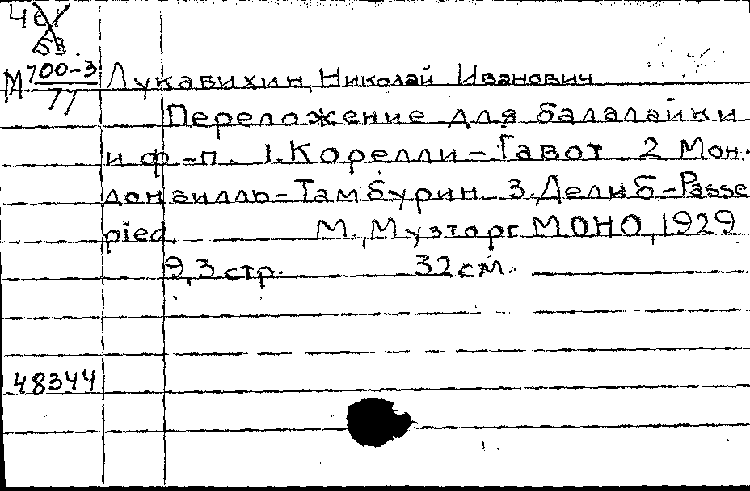 М 700-3/77
Лукавихин, Николай Иванович
Переложение для балалайки
и ф-п. 1. Корелли-Гавот 2 Мон-
донвилль-Тамбурин 3. Делиб-Passe
pied М., Музторг МОНО, 1929
9,3 стр. 32 см.
48344